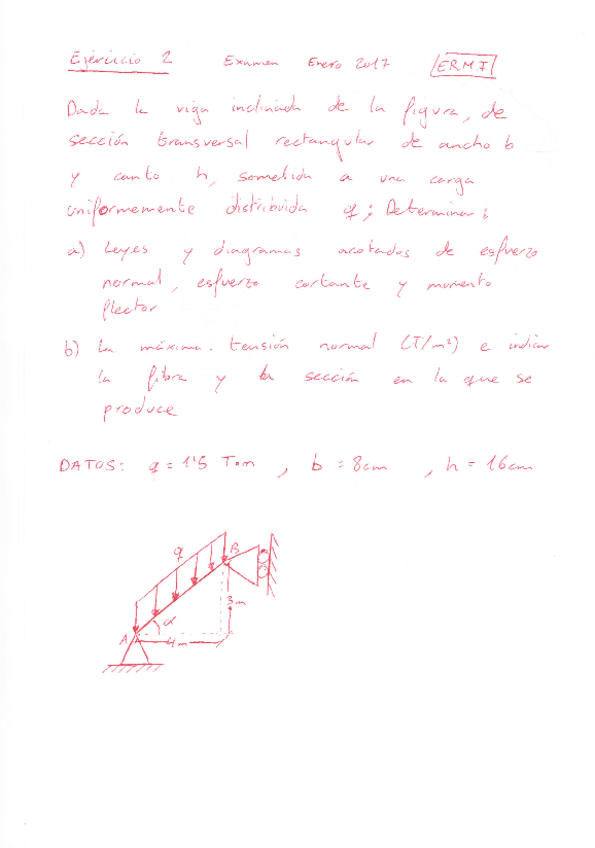 Ejercicio 2 Examen Enero 2017 ERM I
Dada la viga inclinada de la figura, de
sección transversal rectangular de ancho b
y canto h, sometida a una carga
uniformemente distribuida q; Determinar:
a) Leyes y diagramas acotados de esfuerzo
normal, esfuerzo cortante y momento
flector
b) La máxima. tensión normal (T/m²) e indicar
la fibra y la sección en la que se
produce
DATOS: q = 1'5 T·m , b = 8cm , h = 16cm
q
B
3m
α
A
4m